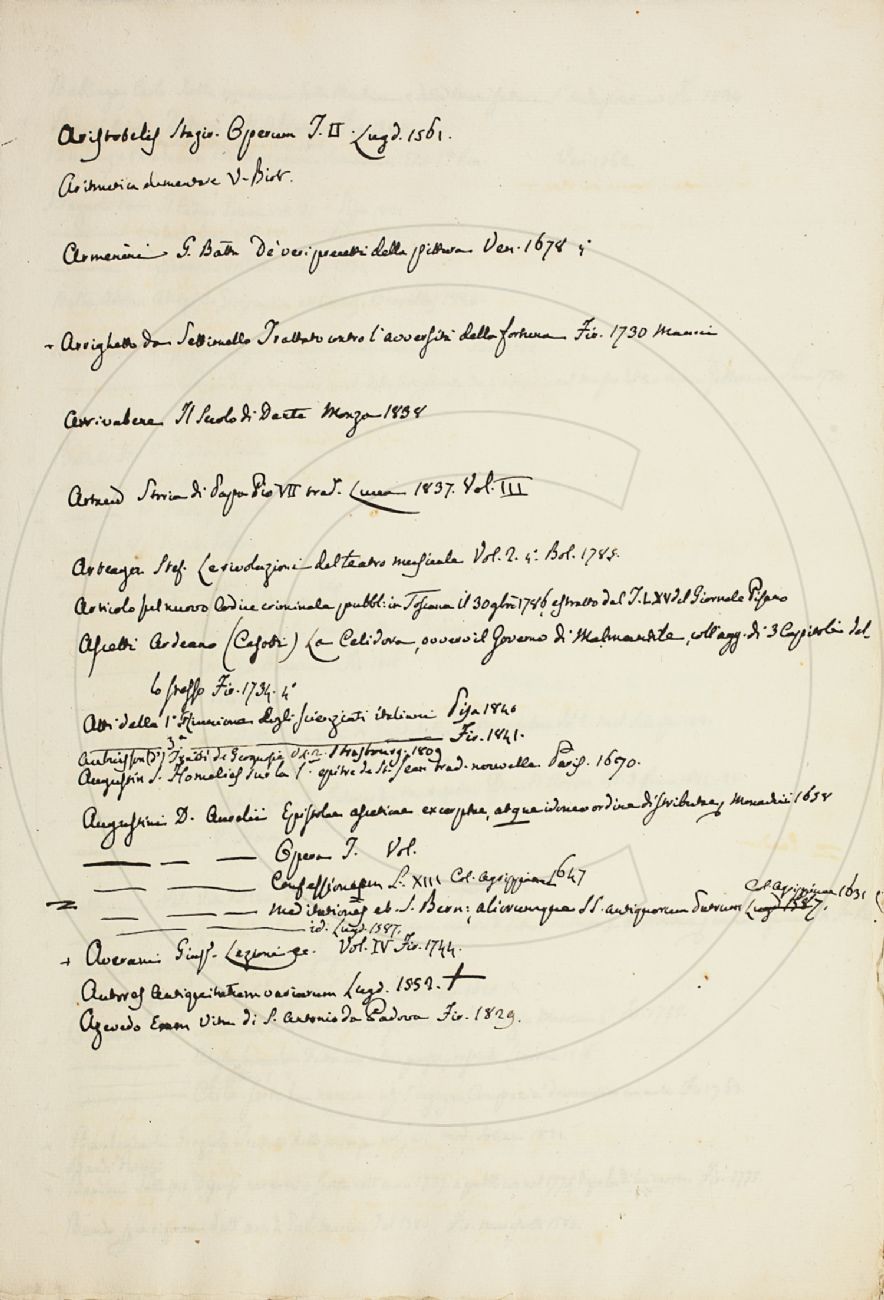 Aristotelis Stagir. Operum T. II. Lugd. 1561.
Aritmetica elementare V. Biot.
Armenini G. Batta De' veri precetti della pittura Ven. 1678 4°
- Arrighetto da Settimello Trattato contro l'avversità della fortuna Fir. 1730 Manni
Arrivabene Il Secolo di Dante Monza 1838
Artaud Storia di Papa Pio VII trad. Lucca 1837. Vol. III
Arteaga Stef. Le rivoluzioni del teatro musicale Vol. 2. 4° Bol. 1785.
Articolo sul nuovo Codice criminale pubbl. in Toscana il 30 9bre 1786, estratto dal T. LXV del Giornale Pisano
Ascetti Ardeano (Casotti) La Celidora, ovvero il Governo di Malmantile, coll'agg. di 3 Capitoli del-
lo stesso Fir. 1734. 4°
Atti della 1a Riunione degli scienziati italiani Pisa 1840
3a Fir. 1841.
Strasbourg. 1809
Augustin S. Homelies sur la 1e epitre de St. Jean trad. nouvelle Paris. 1670.
Augustini D. Aurelii Epistolae asceticae excerptae, atque idoneo ordine distributae, Monachii 1658
Opera T. Vol.
Confessionum L. XIII Col. Agrippinae 1647
Meditationes et S. Bern: aliorumque SS. antiquorum Patrum Lugd. 1587. Col. Agrippinae 1631
id. Lugd. 1587.
+ Averani Gius. Lezioni ec. Vol. IV Fir. 1744.
Autores Antiquitatum variarum Lugd. 1552. +
Azevedo Eman Vita di S. Antonio da Padova Fir. 1829.